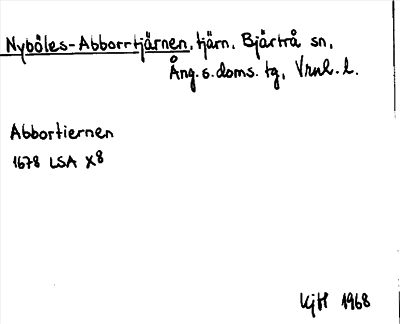 Nyböles-Abborrtjärnen, tjärn, Bjärtrå sn,
Ång. s. doms. tg, Vrnl. l.
Abbortiernen
1678 LSA X8
KjH 1968